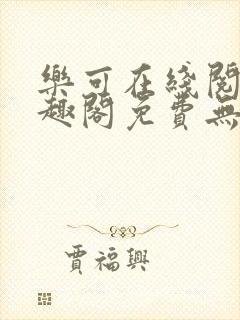 樂可在綫閱
趣閣免費無
賈福興